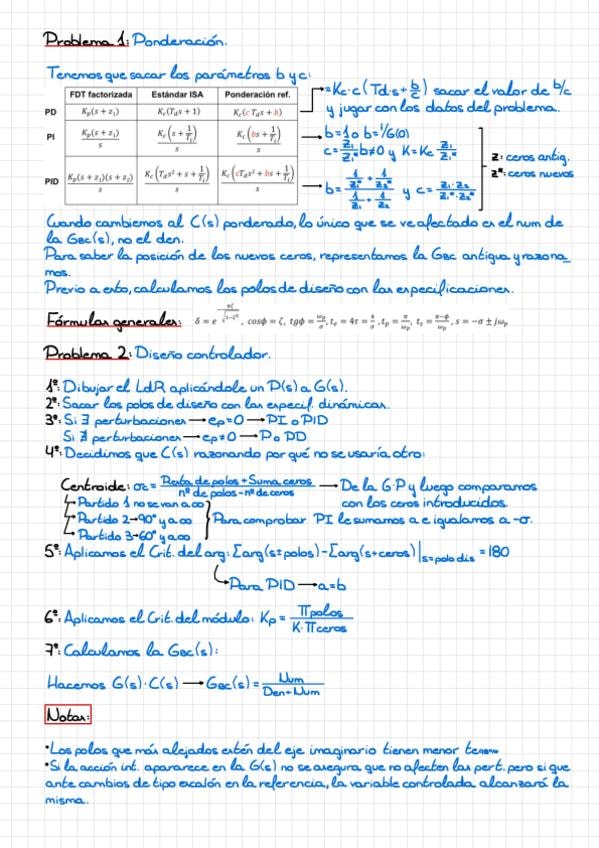 Problema 1: Ponderación.
Tenemos que sacar los parámetros b y c:
FDT factorizada Estándar ISA Ponderación ref.
PD Kp(s + z1) Kc(Tds + 1) Kc(cTds + b)
→=Kc·c(Td·s+b/c) sacar el valor de b/c
y jugar con los datos del problema.
PI Kp(s + z1)/s Kc(s + 1/Ti)/s Kc(bs + 1/Ti)/s
→b=1 o b=1/G(0)
c=z1/z1* b≠0 y K=Kc z1/z1*
z: ceros antig.
z*: ceros nuevos
PID Kp(s + z1)(s + z2)/s Kc(Tds² + s + 1/Ti)/s Kc(cTds² + bs + 1/Ti)/s
→b=(1/z1* + 1/z2*)/(1/z1 + 1/z2) y c=z1·z2/z1*·z2*
Cuando cambiemos al C(s) ponderado, lo único que se ve afectado es el num de
la GBC(s), no el den.
Para saber la posición de los nuevos ceros, representamos la GBC antigua y razona_
mos.
Previo a esto, calculamos los polos de diseño con las especificaciones.
Fórmulas generales: δ = e^(−πζ/√(1−ζ²)), cosϕ = ζ, tgϕ = ωp/σ, ts = 4τ = 4/σ, tp = π/ωp, ts = (π−ϕ)/ωp, s = −σ ± jωp
Problema 2: Diseño controlador.
1º: Dibujar el LdR aplicándole un P(s) a G(s).
2º: Sacar los polos de diseño con las especif. dinámicas.
3º: Si ∃ perturbaciones → ep=0 → PI o PID
Si ∄ perturbaciones → ep≠0 → P o PD
4º: Decidimos que C(s) razonando por qué no se usaría otro:
Centroide: σc = Resta de polos + Suma ceros/nº de polos - nº de ceros → De la G·P y luego comparamos
con los ceros introducidos.
→Partido 1 no se van a ∞
→Partido 2→90º y a ∞ Para comprobar PI le sumamos a e igualamos a -σ.
→Partido 3→60º y a ∞
5º: Aplicamos el Crit. del arg: Σarg(s±polos)-Σarg(s+ceros)|s=polo dis =180
→Para PID→a=b
6º: Aplicamos el Crit. del módulo: Kp = Πpolos/K·Πceros
7º: Calculamos la GBC(s):
Hacemos G(s)·C(s) → GBC(s) = Num/Den+Num
Notas:
•Los polos que más alejados estén del eje imaginario tienen menor
•Si la acción int. apararece en la G(s) no se asegura que no afecten las pert. pero si que
ante cambios de tipo escalón en la referencia, la variable controlada alcanzará la
misma.